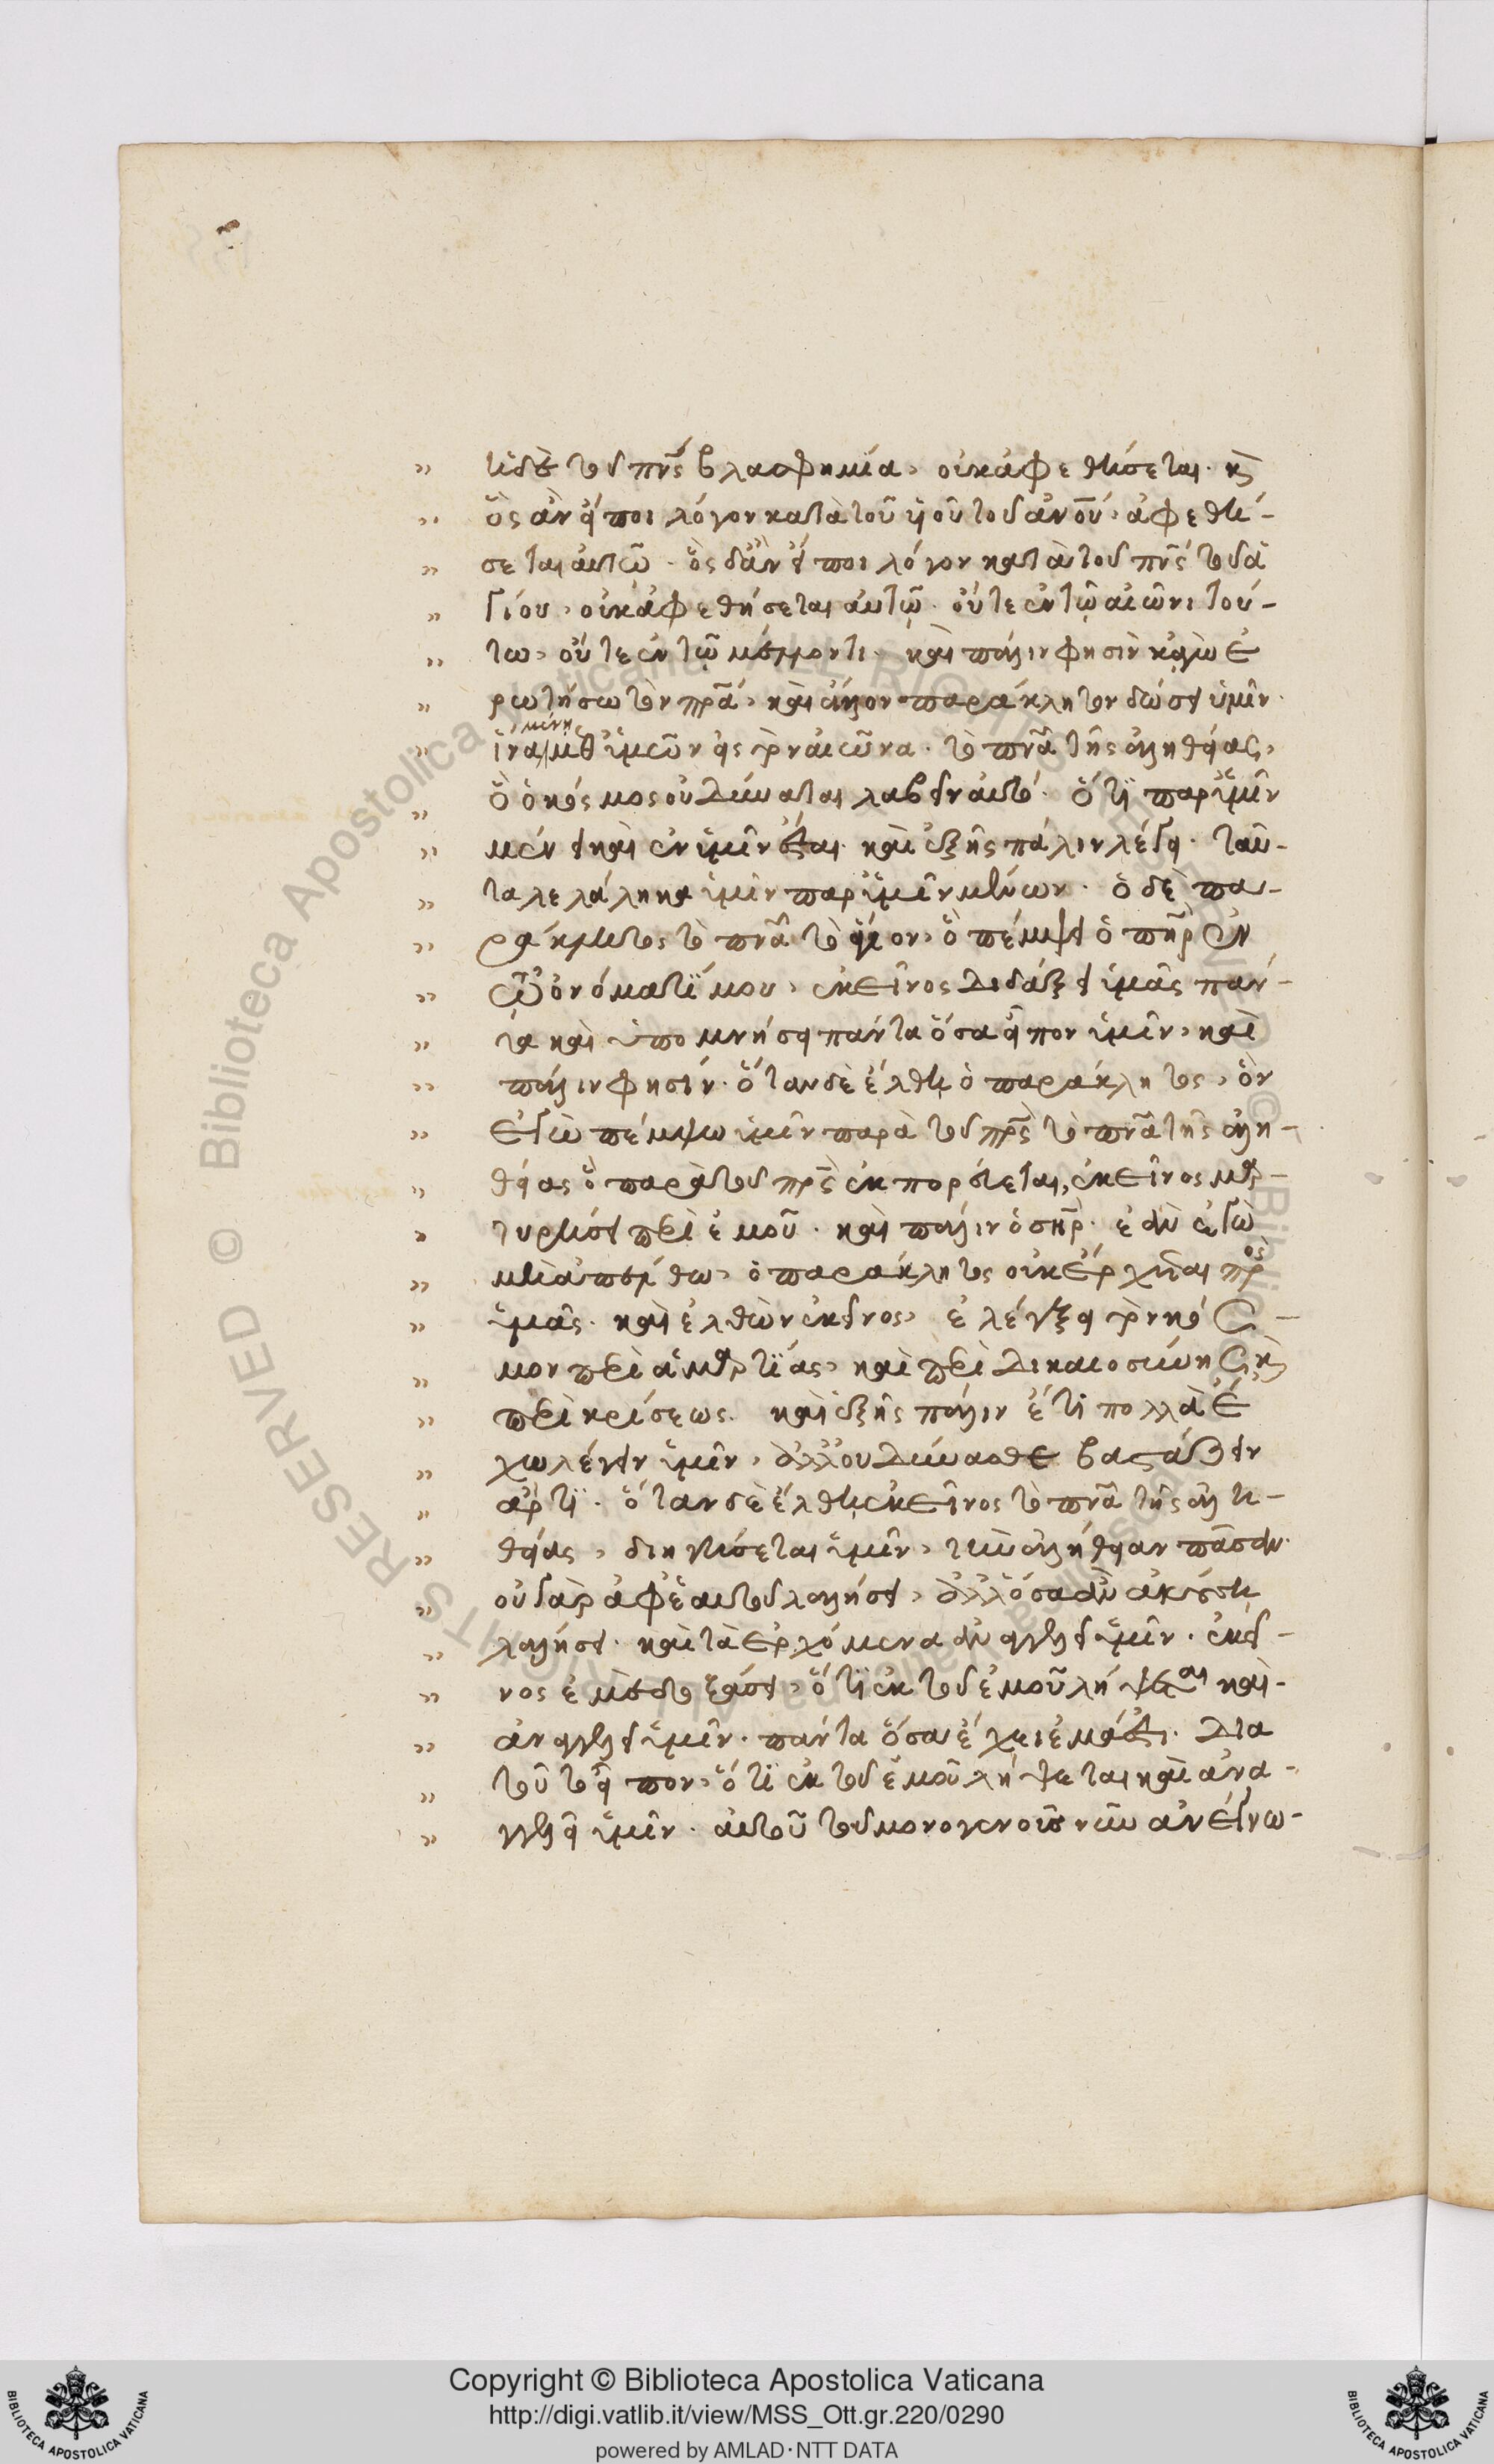 ἡ δὲ τοῦ πνς βλασφημία, οὐκ ἀφεθήσεται. κ
ὃς ἂν εἴποι λόγον κατὰ τοῦ υἱοῦ τοῦ ἀνοῦ, ἀφεθή-
σεται αὐτῶ. ὃς δἂν εἴποι λόγον κατὰ τοῦ πνς τοῦ ἁ
γίου, οὐκ ἀφεθήσεται αὐτῶ. οὔτε ἐν τῶ αἰῶνι τού-
τω, οὔτε ἐν τῶ μέλλοντι. καὶ πάλιν φησὶν κἀγὼ ἐ
ρωτήσω τὸν πρα, καὶ ἄλλον παράκλητον δώσει ὑμῖν.
ἵνα μένη μεθ ὑμῶν εἰς τὸν αἰῶνα. τὸ πνα τῆς ἀληθείας,
ὃ ὁ κόσμος οὐ δύναται λαβεῖν αὐτό. ὅτι παρ ὑμῖν
μένει καὶ ἐν ὑμῖν ἔσται. καὶ ἑξῆς πάλιν λέγει. ταῦ-
τα λελάληκα ὑμῖν παρ ὑμῖν μένων. ὁ δὲ πα-
ράκλητος τὸ πνα τὸ ἅγιον, ὃ πέμψει ὁ πηρ ἐν
τῶ ὀνόματί μου, ἐκεῖνος διδάξει ὑμᾶς πάν-
τα καὶ ὑπομνήσει πάντα ὅσα εἶπον ὑμῖν, καὶ
πάλιν φησίν. ὅταν δὲ ἔλθη ὁ παράκλητος, ὃν
ἐγὼ πέμψω ὑμῖν παρὰ τοῦ πρς τὸ πνα τῆς ἀλη-
θείας ὃ παρὰ τοῦ πρς ἐκπορεύεται, ἐκεῖνος μαρ-
τυρήσει περὶ ἐμοῦ. καὶ πάλιν ὁ σηρ. ἐὰν ἐγὼ
μὴ ἀπέλθω, ὁ παράκλητος οὐκ ἔρχεται πρὸς
ὑμᾶς. καὶ ἐλθὼν ἐκεῖνος, ἐλέγξει τὸν κόσ-
μον περὶ ἁμαρτίας, καὶ περὶ δικαιοσύνης κὶ
περὶ κρίσεως. καὶ ἑξῆς πάλιν ἔτι πολλὰ ἔ
χω λέγειν ὑμῖν, ἀλλ οὐ δύνασθε βαστάζειν
ἄρτι. ὅταν δὲ ἔλθη ἐκεῖνος τὸ πνα τῆς ἀλη-
θείας, διηγήσεται ὑμῖν, τὴν ἀλήθειαν πᾶσαν.
οὐ γὰρ ἀφ ἑαυτοῦ λαλήσει, ἀλλ ὅσα ἂν ἀκούση
λαλήσει. καὶ τὰ ἐρχόμενα ἀναγγελεῖ ὑμῖν. ἐκεῖ-
νος ἐμὲ δοξάσει, ὅτι ἐκ τοῦ ἐμοῦ λήψεται καὶ-
ἀναγγελεῖ ὑμῖν. πάντα ὅσα ἔχει ἐμά ἐστι. δια
τοῦτο εἶπον, ὅτι ἐκ τοῦ ἐμοῦ λήψεται καὶ ἀνα-
γγελεῖ ὑμῖν. αὐτοῦ τοῦ μονογενοῦς νῦν ἀνέγνω-
Copyright © Biblioteca Apostolica Vaticana
http://digi.vatlib.it/view/MSS_Ott.gr.220/0290
powered by AMLAD·NTT DATA